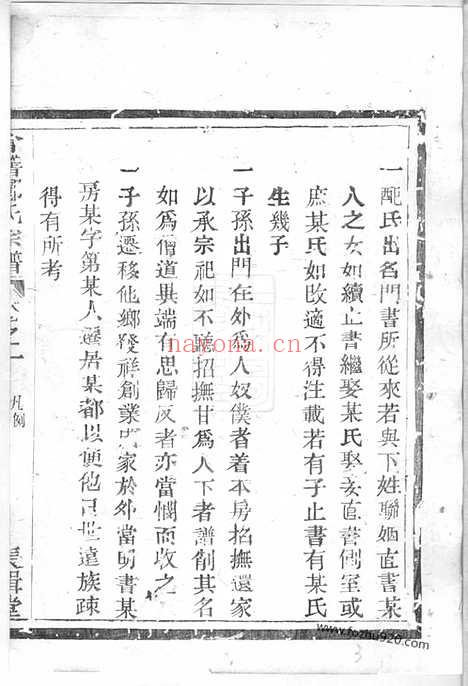 一配氏出名門書所從來若與下姓聯姻直書某
人之女如續止書繼娶某氏娶妾直書側室或
庶某氏如改適不得注載若有子止書有某氏
生幾子
一子孫出門在外爲人奴僕者着本房招撫還家
以承宗祀如不聽招撫甘爲人下者譜削其名
如爲僧道異端有思歸反者亦當憫而收之
一子孫遷移他鄉發祥創業成家於外當明書某
房某字第某人遷居某都以便他日世遠族疎
得有所考
氏宗譜
卷之一
凡例
堂
nayona.cn
www.fozhu920.com
3